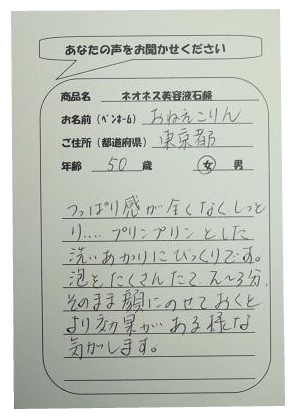 あなたの声をお聞かせください
商品名 ネオネス美容液石鹸
お名前(ペンネーム) おねえこりん
ご住所(都道府県) 東京都
年齢 50 歳 女 男
つっぱり感が全くなくしっと
り‥‥プリンプリンとした
洗いあがりにびっくりです。
泡をたくさんたて、2〜3分、
そのまま顔にのせておくと
より効果がある様な
気がします。